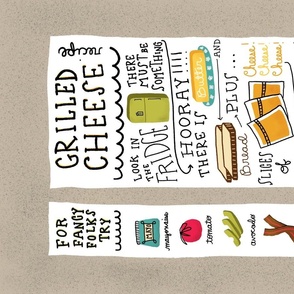 GRILLED
CHEESE
THERE
MUST BE
SOMETHING
LOOK IN
THE
FRIDGE
HOORAY!!!!
THERE IS
Butter
AND
PLUS...
Bread
Cheese!
Cheese!
Cheese!
SLICES
of
FOR
FANCY
FOLKS
TRY
MAYO
mayonnaise
tomato
avocado